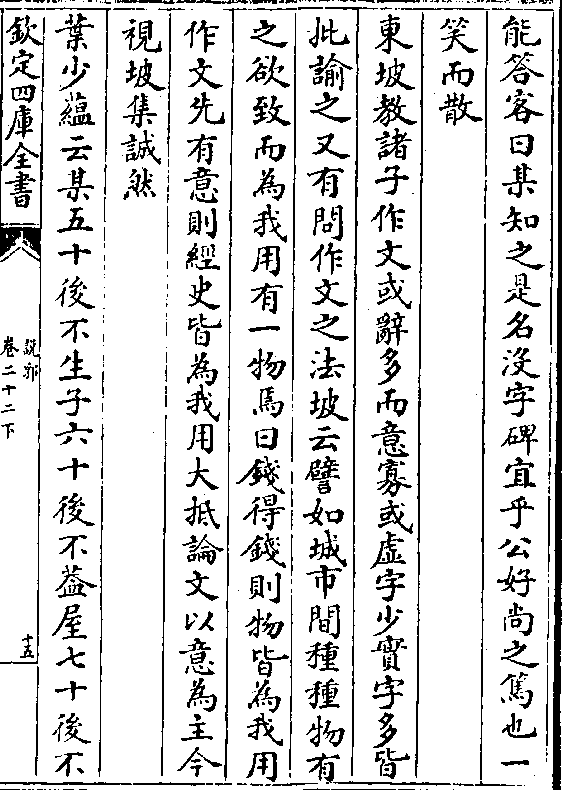 能答客曰某知之是名没字碑宜乎公好尚之篤也一
笑而散
東坡教諸子作文或辭多而意寡或虚字少實字多皆
批諭之又有問作文之法坡云譬如城市間種種物有
之欲致而為我用有一物焉曰錢得錢則物皆為我用
作文先有意則經史皆為我用大抵論文以意為主今
視坡集誠然
葉少藴云某五十後不生子六十後不葢屋七十後不
欽定四庫全書
説郛
卷二十二下
十五